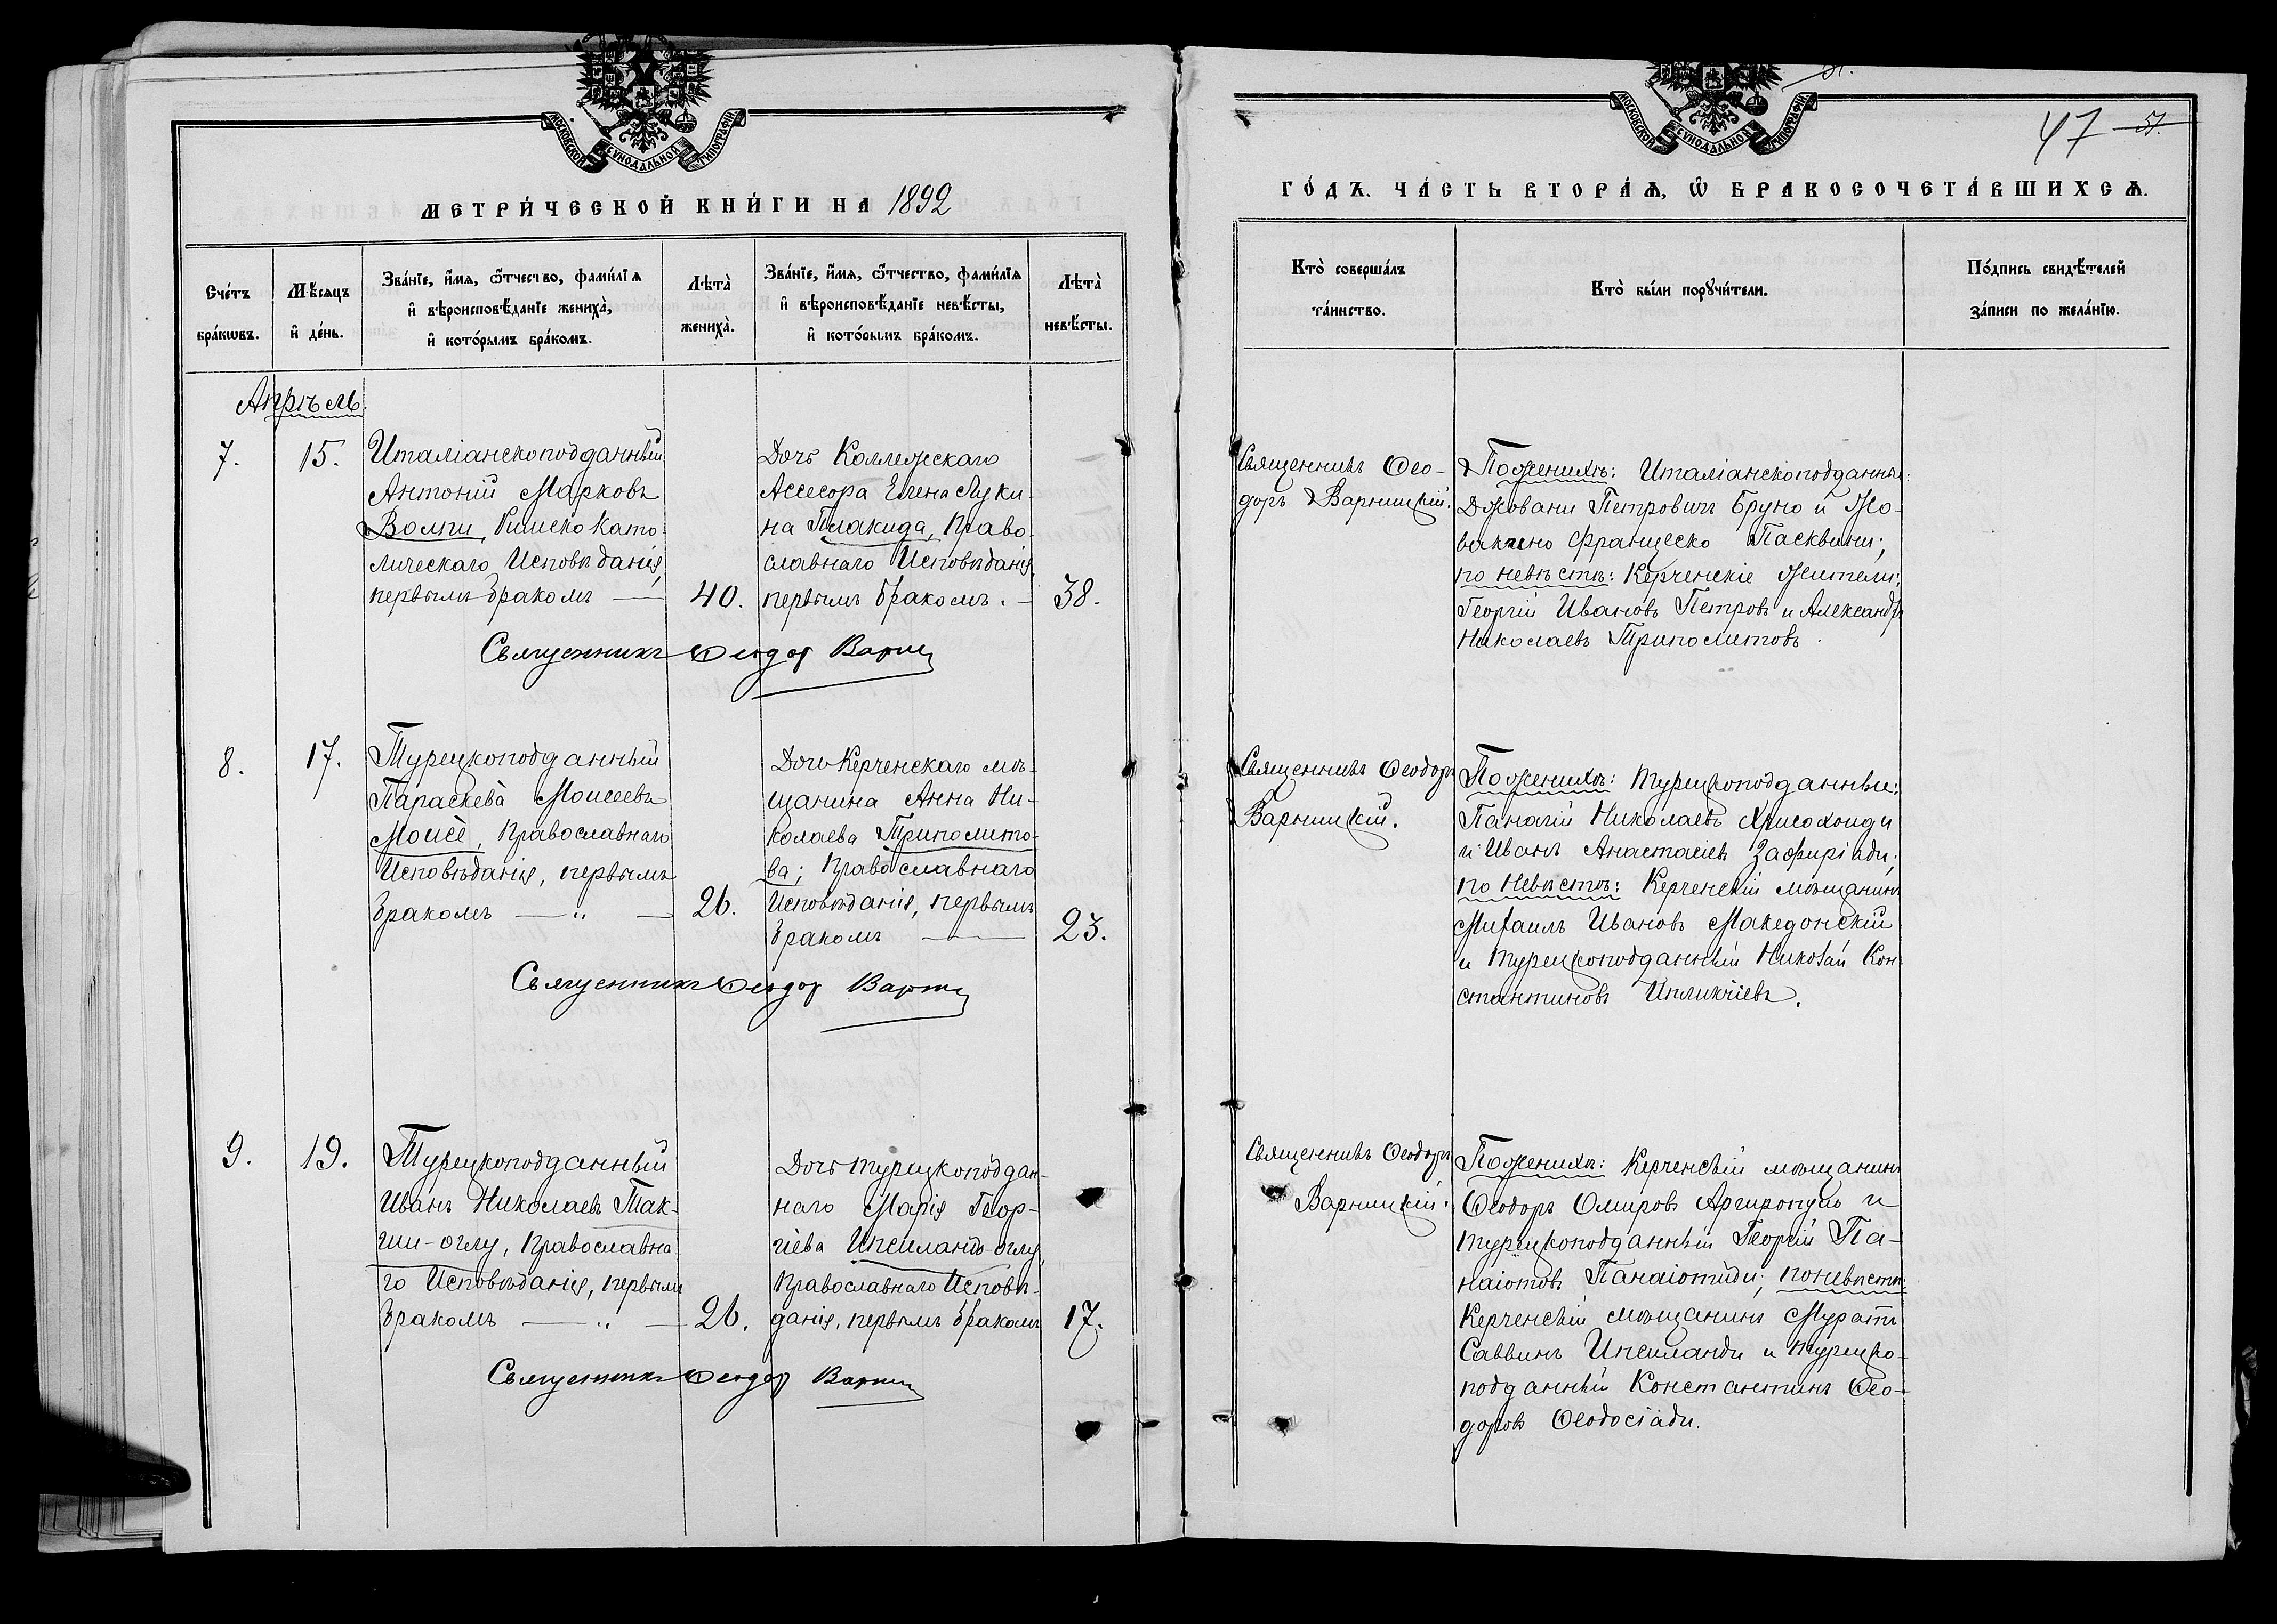 МОСКОВСКОЙ СУНОДАЛЬНОЙ ТИПОГРАФІИ
МЕТРИ́ЧЕСКОЙ КНИ́ГИ НА 1892
Сче́тъ бра́кѡвъ.
Мѣ́сяцъ и҆ де́нь.
Зва́нїе, и҆́мѧ, ѻ҆́тчество, фами́лїѧ
и҆ вѣроисповѣ́данїе жениха̀,
и҆ кото́рымъ бра́комъ.
Лѣта̀
жениха̀.
Зва́нїе, и҆́мѧ, ѻ҆́тчество, фами́лїѧ
и҆ вѣроисповѣ́данїе невѣ́сты,
и҆ кото́рымъ бра́комъ.
Лѣта̀
невѣ́сты.
Апрѣль.
7.
15.
Италіанскоподданный
Антоній Марковъ
Волпи, Римско Като-
лическаго Исповѣданія,
первымъ бракомъ —
40.
Дочь Коллежскаго
Ассесора Елена Луки-
на Плакида, Право-
славнаго Исповѣданія,
первымъ бракомъ. —
38.
Священникъ Ѳеодор Варниц
8.
17.
Турецкоподданный
Параскева Моисеевъ
Моисе, Православнаго
Исповѣданія, первымъ
бракомъ — " —
26.
Дочь Керченскаго мѣ-
щанина Анна Ни-
колаева Триполито-
ва; Православнаго
Исповѣданія, первымъ
бракомъ —
23.
Священникъ Ѳеодор Варниц
9.
19.
Турецкоподданный
Иванъ Николаевъ Так-
ши-оглу, Православна-
го Исповѣданія, первымъ
бракомъ — " —
26.
Дочь турецкоподдан-
наго Марія Геор-
гіева Ипсиланто-оглу,
Православнаго Исповѣ-
данія, первымъ бракомъ
17.
Священникъ Ѳеодор Варниц
МОСКОВСКОЙ СУНОДАЛЬНОЙ ТИПОГРАФІИ
51.
47 51.
ГО́ДЪ. ЧА́СТЬ ВТОРА́Ѧ, Ѡ҆ БРАКОСОЧЕТА́ВШИХСѦ.
Кто̀ соверша́лъ
та́инство.
Кто̀ бы́ли порꙋчи́тели.
По́дпись свидѣ́телей
за́писи по жела́нїю.
Священникъ Ѳео-
доръ Варницкій.
По женихѣ: Италіанскоподданные:
Джовани Петровичъ Бруно и Жо-
Франческо Пасквини;
по невѣстѣ: Керченскіе жители:
Георгій Ивановъ Петровъ и Александръ
Николаевъ Триполитовъ.
Священникъ Ѳеодоръ
Варницкій.
По женихѣ: турецкоподданные:
Панагій Николаевъ Хрисохоиди
и Иванъ Анастасіевъ Зафиріади;
по невѣстѣ: Керченскій мѣщанинъ
Михаилъ Ивановъ Македонскій
и турецкоподданный Николай Кон-
стантиновъ Ипликчіевъ.
Священникъ Ѳеодоръ
Варницкій.
По женихѣ: Керченскій мѣщанинъ
Ѳеодоръ Омировъ Аргиропуло и
турецкоподданный Георгій Па-
наіотовъ Панаіотиди; по невѣстѣ:
Керченскій мѣщанинъ Муратъ
Саввинъ Ипсиланди и турецко-
подданный Константинъ Ѳео-
доровъ Ѳеодосіади.